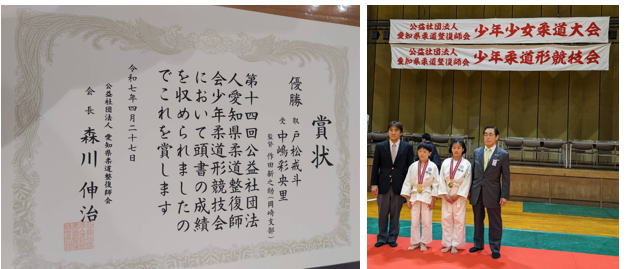 賞状
優勝
取 戸松戒斗
受 中嶋彩央里
監督 作田新之助(岡崎支部)
第十四回公益社団法
人愛知県柔道整復師
会少年柔道形競技会
において頭書の成績
を収められましたの
でこれを賞します
令和七年四月二十七日
公益社団法人 愛知県柔道整復師会
会長 森川伸治
公益社団法人
愛知県柔道整復師会 少年少女柔道大会
公益社団法人
愛知県柔道整復師会 少年柔道形競技会